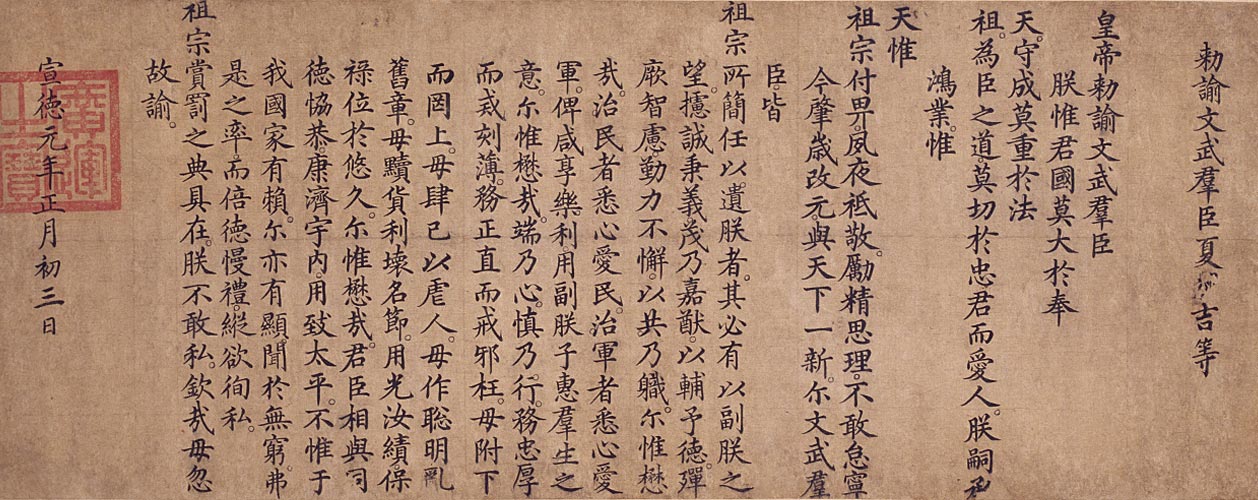 勅諭文武羣臣夏吉等
皇帝勅諭文武羣臣
朕惟君國莫大於奉
天。守成莫重於法
祖。為臣之道。莫切於忠君而愛人。朕嗣承
鴻業。惟
天惟
祖宗付畀。夙夜祇敬。勵精思理。不敢怠寧
今肇歲改元。與天下一新。尔文武羣
臣。皆
祖宗所簡任以遺朕者。其必有以副朕之
望。攄誠秉義。茂乃嘉猷。以輔予德。殫
厥智慮。勤力不懈。以共乃職。尔惟懋
㢤。治民者悉心愛民。治軍者悉心愛
軍。俾咸享樂利。用副朕子惠羣生之
意。尔惟懋㢤。端乃心。慎乃行。務忠厚
而戒刻薄。務正直而戒邪枉。毋附下
而罔上。毋肆己以虐人。毋作聡明亂
舊章。毋黷貨利壞名節。用光汝績。保
祿位於悠久。尔惟懋㢤。君臣相與。同
德恊恭。康濟宇內。用致太平。不惟于
我國家有賴。尔亦有顯聞於無窮。弗
是之率。而倍德慢禮。縱欲徇私。
祖宗賞罰之典具在。朕不敢私。欽㢤毋忽
故諭。
宣德元年正月初三日
廣運之寶